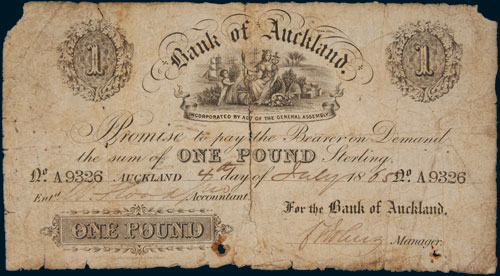 1 Bank of Auckland. 1
INCORPORATED BY ACT OF THE GENERAL ASSEMBLY
I Promise to pay the Bearer on Demand
the sum of ONE POUND Sterling.
No A9326 AUCKLAND 4th day of July 1865 No A9326
Entd Accountant.
For the Bank of Auckland.
ONE POUND
Manager.